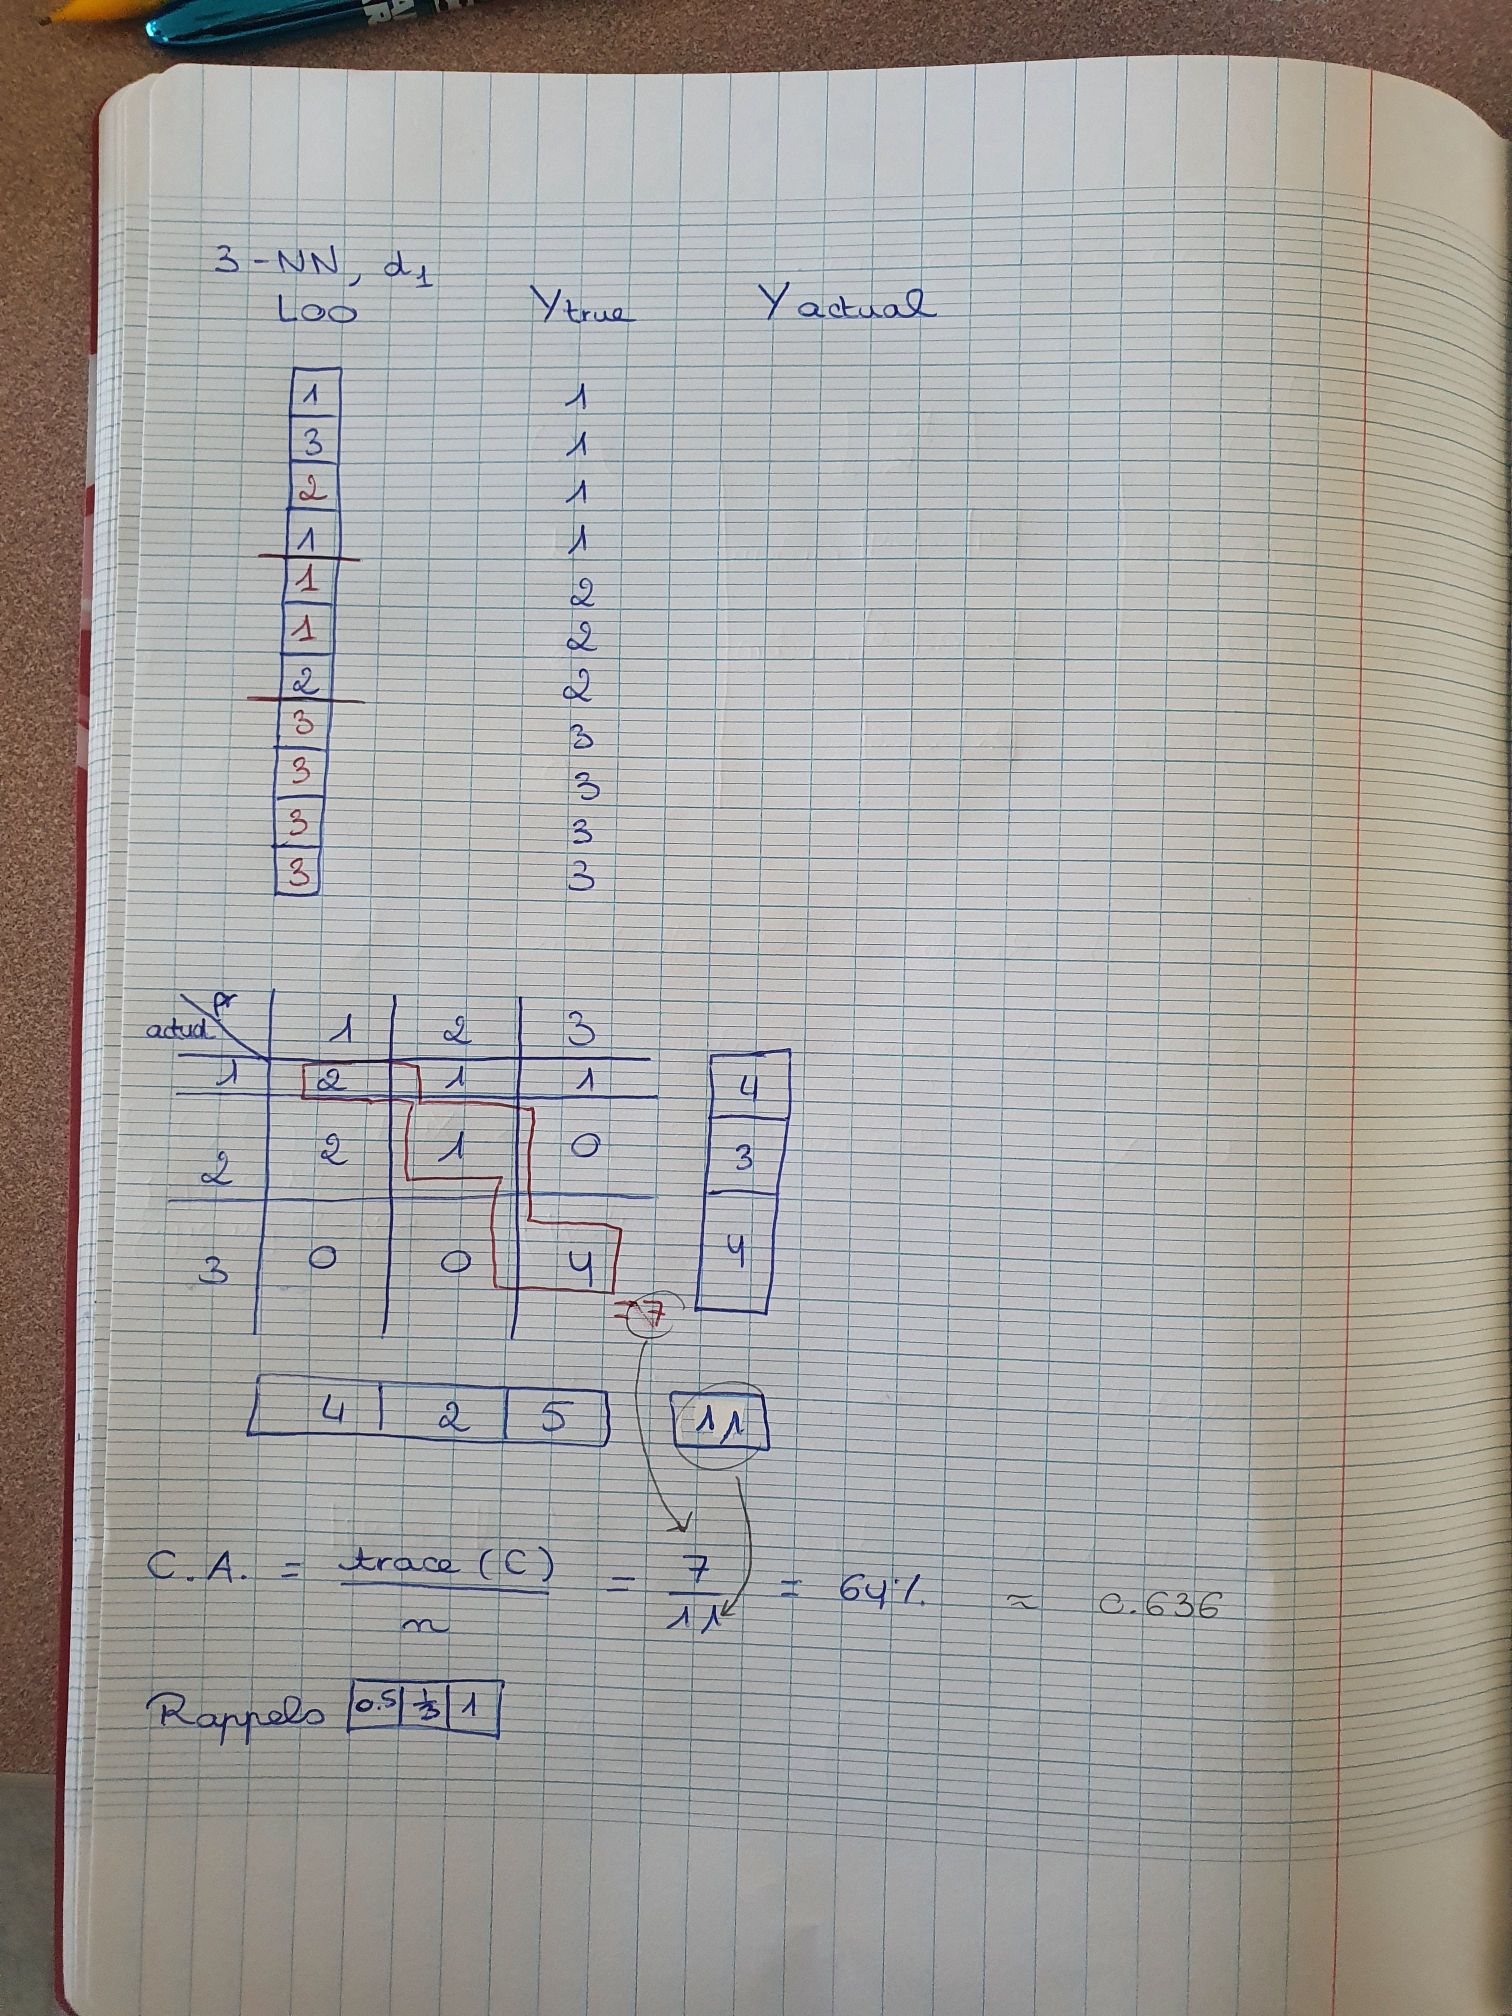 3-NN, d1
LOO Ytrue Yactual
1 1
3 1
2 1
1 1
1 2
1 2
2 2
3 3
3 3
3 3
3 3
pr
actual 1 2 3
1 2 1 1 4
2 2 1 0 3
3 0 0 4 4
=7
4 2 5 11
C.A. = trace (C) / n = 7 / 11 = 64% ≈ 0.636
Rappels 0.5 1/3 1